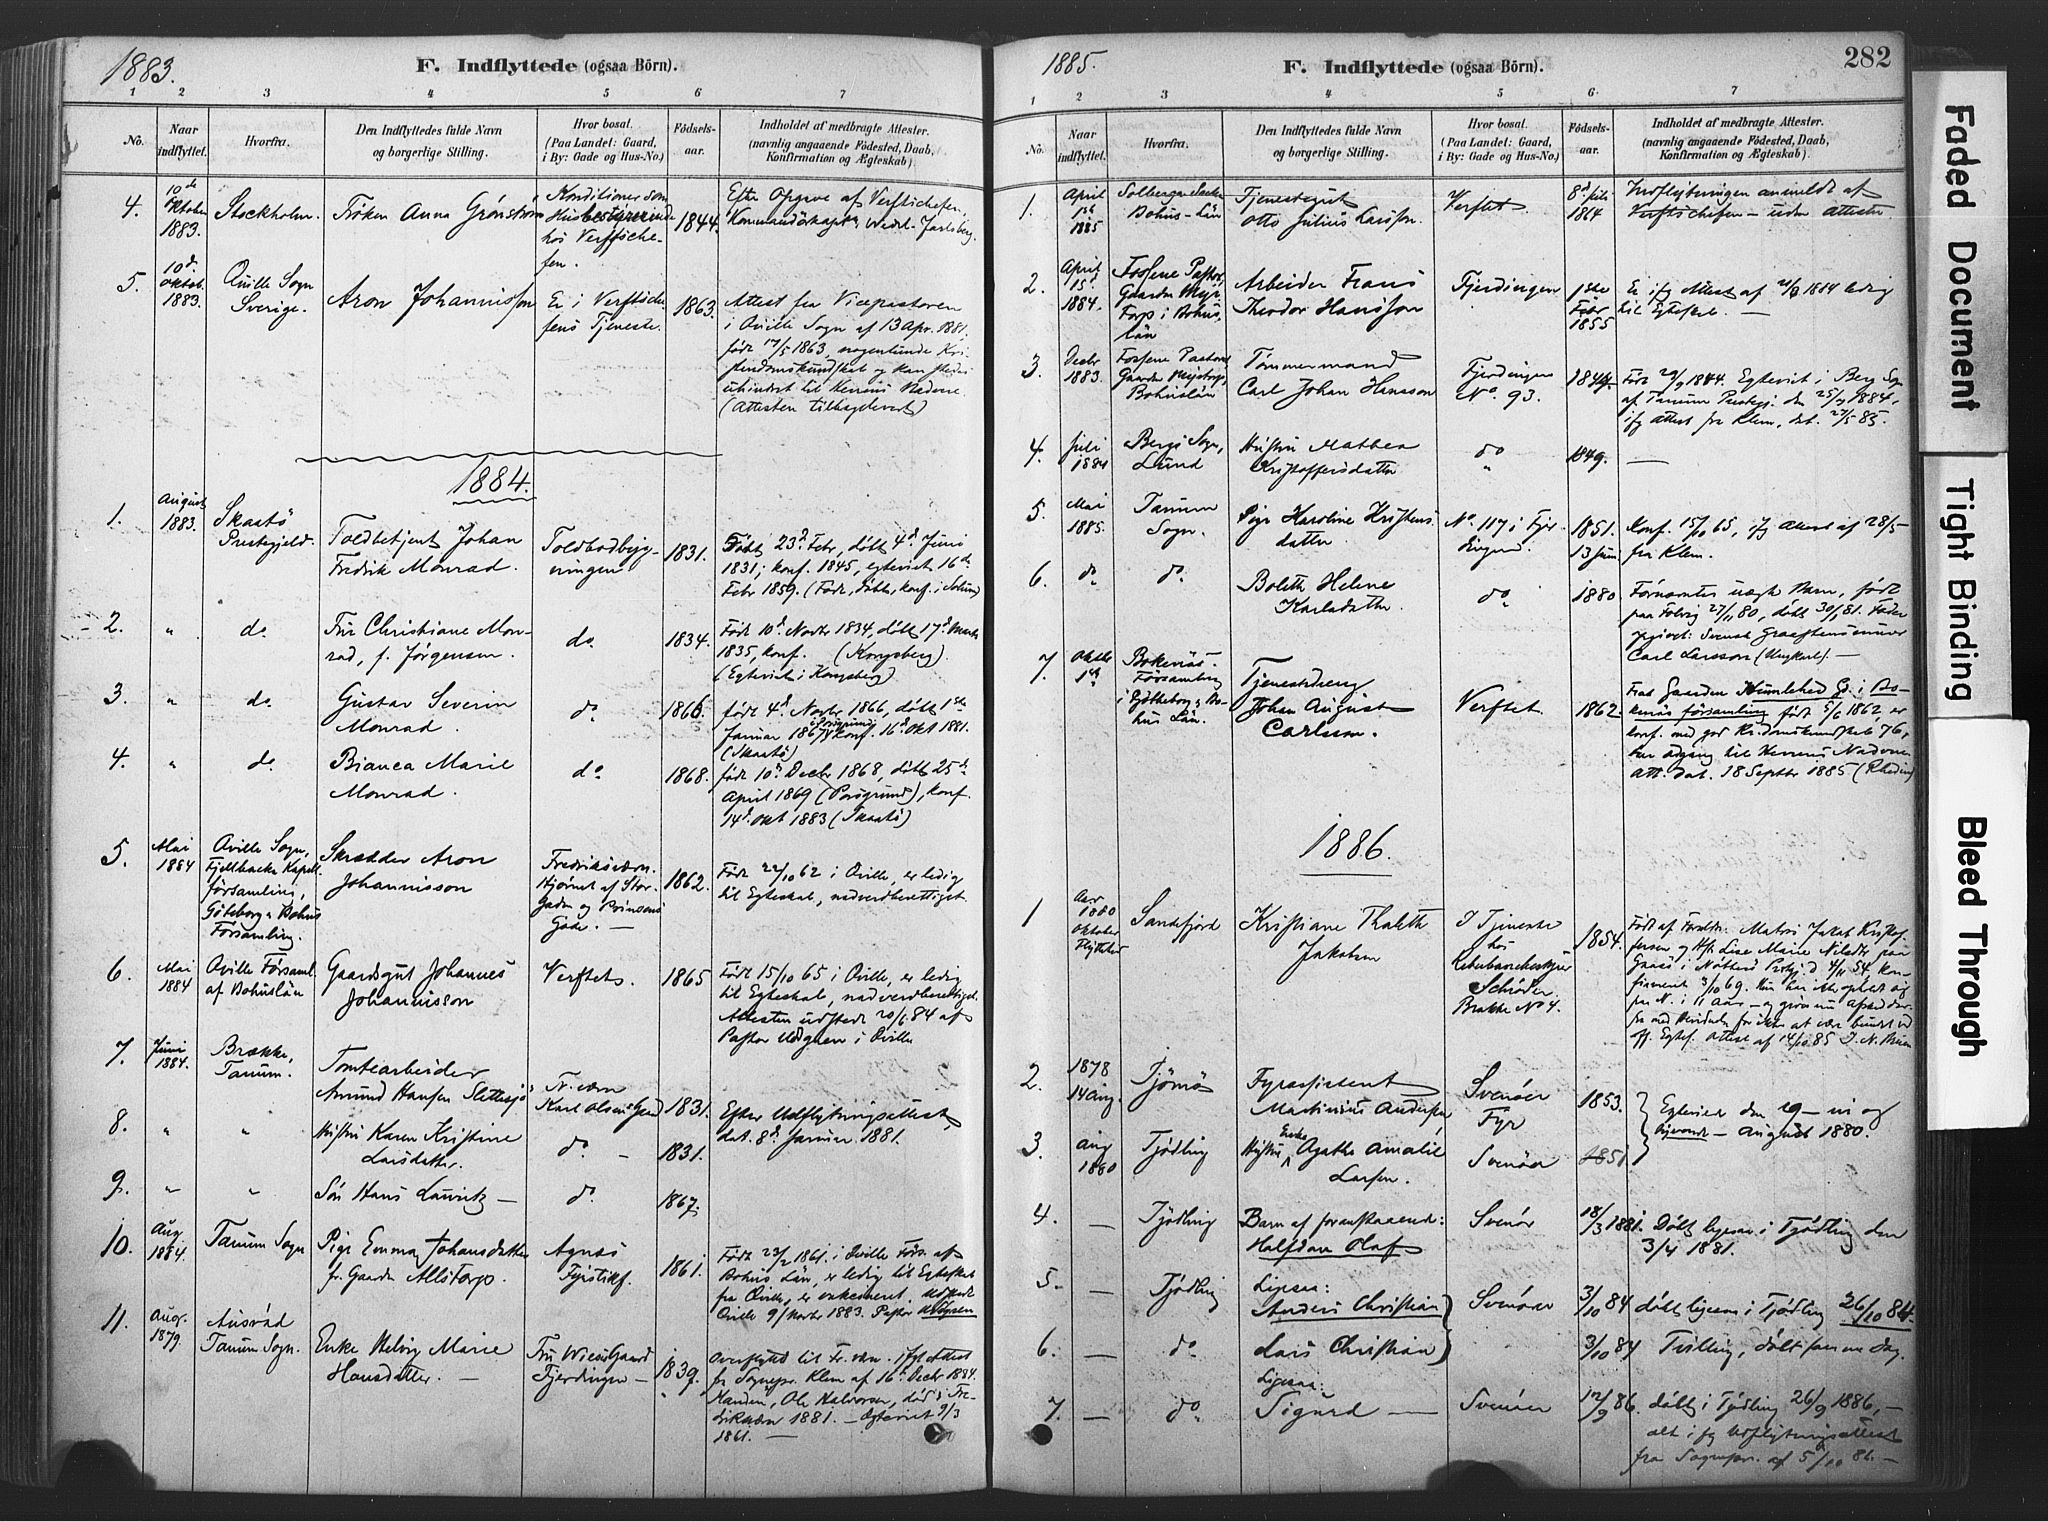 1883.
F. Indflyttede (ogsaa Börn).
1 2 3 4 5 6 7
No.
Naar indflyttet.
Hvorfra.
Den Indflyttedes fulde Navn
og borgerlige Stilling.
Hvor bosat.
(Paa Landet: Gaard,
i By: Gade og Hus-No.)
Fødsels-
aar.
Indholdet af medbragte Attester.
(navnlig angaaende Födested, Daab,
Konfirmation og Ægteskab).
4. 10de Oktober 1883. Stockholm. Frøken Anna Grönström
Konditioner som
Husbestyrerinde
hos Verftsche-
fen.
1844.
Efter Opgave af Verftschefen,
Kommandörkapt. Wedel-Jarlsberg.
5. 10d. Oktob. 1883. Qville Sogn
Sverige.
Aron Johannisson
Er i Verftsche-
fens Tjeneste.
1863.
Attest fra Vicepastoren
i Qville Sogn af 13 Apr. 1881,
født 17/5 1863, nogenlunde Kri-
stendomskundskab og kan stedes
uhindret til Herrens Nadvere.
(Attesten tilbageleveret)
1884.
1. August 1883. Skaatö
Prestegjeld.
Toldbetjent Johan
Fredrik Monrad.
Toldbodbyg-
ningen
1831.
Født 23d Febr, døbt 4d Juni
1831; konf. 1845, egteviet 16de
Febr 1859. (Født, døbt, konf. i
2. " do. Fru Christiane Mon-
rad, f. Jørgensen.
do.
1834.
Født 10d. Novbr 1834, døbt 17d. Marts
1835, konf. (Kongsberg).
(Egteviet i Kongsberg)
3. " do. Gustav Severin
Monrad.
do.
1866.
født 4d. Novbr 1866, døbt 1ste
Januar 1867 i Porsgrund, konf. 16d. Okt 1881.
(Skaatö)
4. " do. Bianca Marie
Monrad.
do
1868.
født 10d. Decbr 1868, døbt 25d.
April 1869 (Porsgrund), konf.
14d. Okt 1883 (Skaatö)
5. Mai 1884 Qville Sogn,
Fjellbacka Kapell-
församling,
Göteborg o Bohus
Församling.
Skrædder Aron
Johannisson
Fredriksværn
Hjørnet af Stor-
gaden og Prinsens
Gade. —
1862.
Født 22/10 62 i Qville, er ledig
til Egteskab, nadverdberettiget.
6. Mai 1884 Qville Församl.
af Bohuslän
Gaardsgut Johannes
Johannisson
Verftets.
1865
Født 15/10 65 i Qville, er ledig
til Egteskab, nadverdberettiget.
Attesten udstedt 20/6 84 af
Pastor Udgren i Qville
7. Juni 1884. Brække,
Tanum.
Tomtearbeider
Amund Hansen Slettesjö
Fr.værn
Karl Olsens Gaard
1831.
Efter Udflytningsattest,
dat. 8d. Januar 1881.
8. " " Hustru Karen Kristine
Larsdatter.
do —
1831.
9. " " Søn Hans Lauritz —
do
1867.
10. Aug. 1884. Tanum Sogn
Pige Emma Johansdatter
fr. Gaarden Allstorp.
Agnæs
Fyrstikf.
1861.
Født 23/2 1861 i Qville Förs. af
Bohus Län, er ledig til Egteskab
fra Qville, er vakcineret. Udstedt
Qville 9/ Marts 1883. Pastor Udgren
11. Aug. 1879. Ausröd
Tanum Sogn.
Enke Helvig Marie
Hansdatter. —
Fru Wieses Gaard
Fjerdingen —
1839.
Overflyttet til Fr. værn. ifølge Attest
fr Sognepr. Klem af 16d Decbr 1884.
Manden, Ole Halvorsen, død i Fre-
driksværn 1881. — Egteviet 9/3
1861. —
1885.
F. Indflyttede (ogsaa Börn).
282
1 2 3 4 5 6 7
No.
Naar indflyttet.
Hvorfra.
Den Indflyttedes fulde Navn
og borgerlige Stilling.
Hvor bosat.
(Paa Landet: Gaard,
i By: Gade og Hus-No.)
Fødsels-
aar.
Indholdet af medbragte Attester.
(navnlig angaaende Födested, Daab,
Konfirmation og Ægteskab).
1. April 1ste 1885
Bohus-Län
Tjenestegut
Otto Julius Larsson.
Verftet.
1864
Indflytningen anmeldt af
Verftschefen — uden Attester
2. April 15d 1884.
Fossene Pastor.
Gaarden
Torp i Bohus-
län
Arbeider Frans
Theodor Hansson
Fjerdingen
1ste Febr 1855
Er ifg Attest af 1884 ledig
til Egteskab. —
3. Decbr 1883. Fossene Pastorat
Gaarden
Bohuslän
Tømmermand
Carl Johan Hansson
Fjerdingen
No. 93.
1844.
Født 29/9 1844. Egteviet i Berg Sogn
af Tanum Prestegj. den 25/ 1884,
ifg Attest fra Klem, dat. 27/5 85.
4. Juli 1884 Bergs Sogn,
Lund
Hustru Mathea
Kristoffersdatter
do
"
1849.
—
5. Mai 1885. Tanum
Sogn.
Pige Karoline Kristens-
datter
No. 117 i Fjer-
dingen.
1851.
13 Juni
Konf. 15/10 65, ifg Attest af 28/5 —
fra Klem.
6. do do. Boleth Helene
Karlsdatter.
do
1880
Førnævntes uægte Barn, født
paa Folvig 27/11 80, døbt 30/1 81. Fader
opgivet: Svensk
Carl Larsson (Ungkarl). —
7. Oktbr 1ste Bokenäs-
Församling
i Gjøtheborg o Bo-
hus Län.
Tjenestedreng
Johan August
Carlsson.
Verftet
1862
Fra Gaarden Humlehed Gd. i Bo-
kenäs församling født 5/6 1862 er
konf. med god Kr.domskundskab 76,
har adgang til Herrens Nadvere.
Att. dat. 18 Septbr 1885 (Rhedin)
1886.
1 Aar 1880 Oktober Flyttetid
Sandefjord
Kristiane Thaleth
Jakobsen
I Tjeneste
hos
Schrøder
Brakke No 4.
1854.
Født af Foreldr. Matros Jakob Kristof-
fersen og Hst. Lise Marie Nilsdtr paa
i Nötterö Prstgj. d 4/11 54, kon-
firmeret 3/10 69. Hun har
paa N. i 11 Aar —
Attest af 14/10 85
2. 1878 14 Aug. Tjömö
Fyrassistent
Martinius Andersen
Svenöer
Fyr
1853.
Egteviet den 29 —
— August 1880.
3. Aug 1880 Tjödling
Hustru Enke Agathe Amalie
Larsen.
Svenöer
1851
4. — Tjödling
Barn af foranstaaende:
Halfdan Olaf
Svenör
18/3 1881.
Døbt ligesaa i Tjödling den
3/4 1881.
5. — Tjödling
Ligesaa:
Anders Christian
Svenöer
3/10 84
døbt ligesaa i Tjödling 26/10 84.
6. — do. Lars Christian
3/10 84
Tvilling, døbt samme Dag.
7. — do. Ligesaa:
Sigurd —
Svenöer
12/9 86.
døbt i Tjödling 26/9 1886, —
alt ifg Udflytningsattest
fra Sognepr. af 5/10 86. —
Faded Document
Tight Binding
Bleed Through